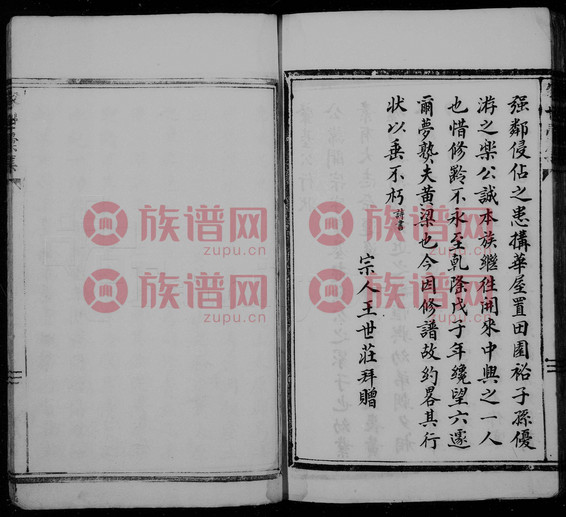 强鄰侵佔之患搆華屋置田園裕子孫優
游之樂公誠本族繼往開來中興之一人
也惜修齡不永至乾隆戊子年纔望六遂
爾夢熟夫黃粱也今因修譜故約畧其行
状以垂不朽 譜書
宗人王世莊拜贈
族谱网
zupu.cn
族谱网
zupu.cn
族谱网
zupu.cn
族谱网
zupu.cn
族谱网
zupu.cn
族谱网
zupu.cn